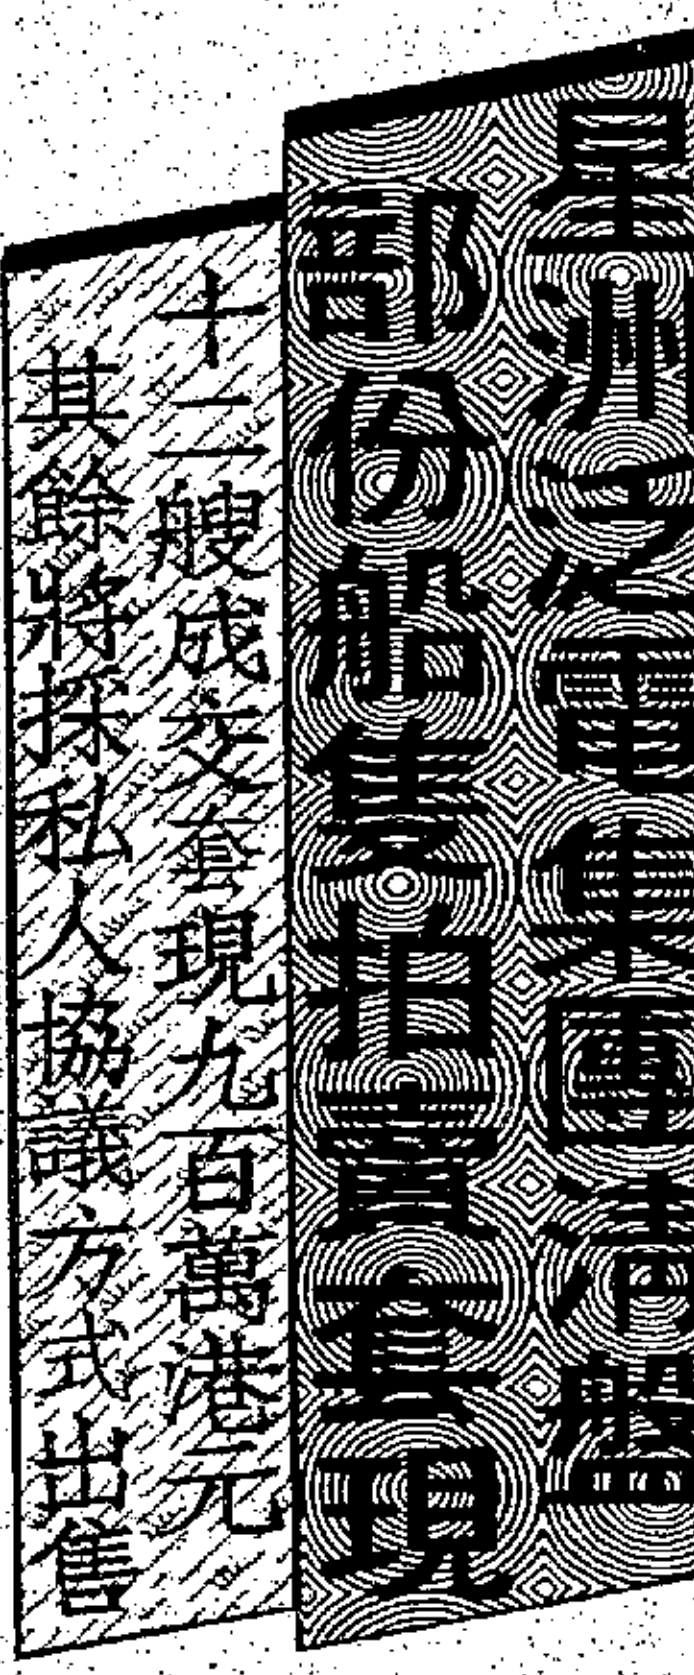 星洲泛電集團清盤
部份船隻拍賣套現
十二艘成交套現九百萬港元
其餘將採私人協議方式出售